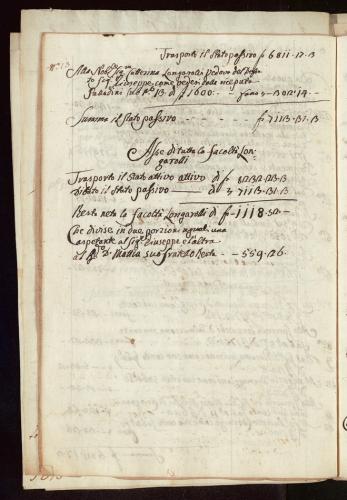 Trasporti il Stato passivo f 6811-17-13
N.° 13 Alla Nob. Sig.ra Catterina Longarolli vedova del
Sig. Giuseppe, come vedesi dalla
sub N.° 13. di f 1600. - fano f - 301-14-
Summa il stato passivo - - - - f 7113-31-13
Asse di tutta la facoltà Lon-
garolli
Trasporti il Stato attivo attivo di f 8232-23-13
Dibato il Stato passivo - di f 7113-31-13
Resta neto la facoltà Longarolli di f 1118-52-
Che divise in due porzioni uguali una
aspetante al Sig. Giuseppe e l'altra
al D. Mattia suo fratello resta - - 559-26-